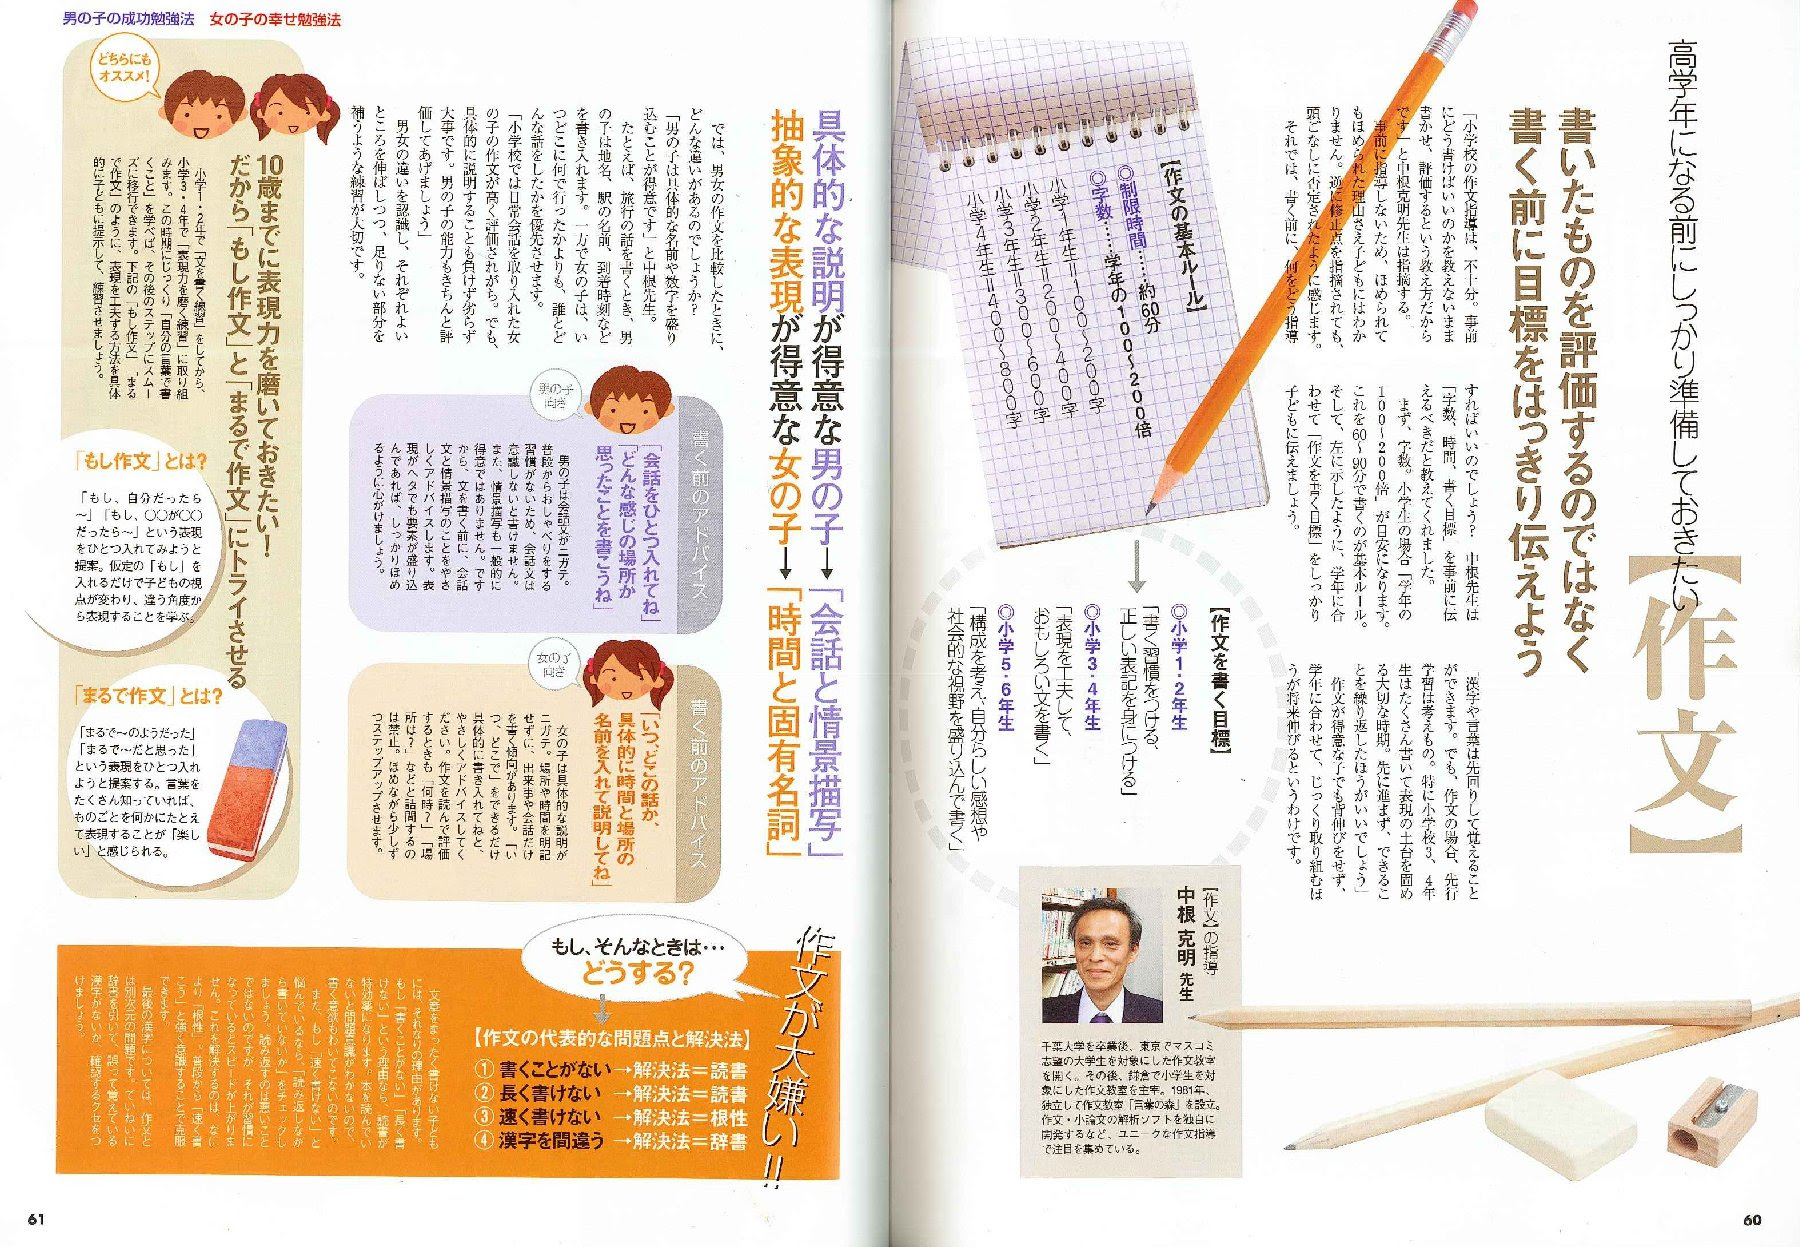 高学年になる前にしっかり準備しておきたい
【作文】
書いたものを評価するのではなく
書く前に目標をはっきり伝えよう
「小学校の作文指導は、不十分。事前
にどう書けばいいのかを教えないまま
書かせ、評価するという教え方だから
です」と中根克明先生は指摘する。
事前に指導しないため、ほめられて
もほめられた理由さえ子どもにはわか
りません。逆に修正点を指摘されても、
頭ごなしに否定されたように感じます。
それでは、書く前に、何をどう指導
すればいいのでしょう? 中根先生は
「字数、時間、書く目標」を事前に伝
えるべきだと教えてくれました。
まず、字数。小学生の場合「学年の
100〜200倍」が目安になります。
これを60〜90分で書くのが基本ルール。
そして、左に示したように、学年に合
わせて「作文を書く目標」をしっかり
子どもに伝えましょう。
漢字や言葉は先回りして覚えること
ができます。でも、作文の場合、先行
学習は考えもの。特に小学校3、4年
生はたくさん書いて表現の土台を固め
る大切な時期。先に進まず、できるこ
とを繰り返したほうがいいでしょう」
作文が得意な子でも背伸びをせず、
学年に合わせて、じっくり取り組むほ
うが将来伸びるというわけです。
【作文の基本ルール】
◎制限時間……約60分
◎字数……学年の100〜200倍
小学1年生=100〜200字
小学2年生=200〜400字
小学3年生=300〜600字
小学4年生=400〜800字
【作文を書く目標】
◎小学1・2年生
「書く習慣をつける、
正しい表記を身につける」
◎小学3・4年生
「表現を工夫して、
おもしろい文を書く」
◎小学5・6年生
「構成を考え、自分らしい感想や
社会的な視野を盛り込んで書く」
【作文】の指導
中根 克明 先生
千葉大学を卒業後、東京でマスコミ
志望の大学生を対象にした作文教室
を開く。その後、鎌倉で小学生を対
象にした作文教室を主宰。1981年、
独立して作文教室「言葉の森」を設立。
作文・小論文の解析ソフトを独自に
開発するなど、ユニークな作文指導
で注目を集めている。
60
男の子の成功勉強法 女の子の幸せ勉強法
具体的な説明が得意な男の子→「会話と情景描写」
抽象的な表現が得意な女の子→「時間と固有名詞」
では、男女の作文を比較したときに、
どんな違いがあるのでしょうか?
「男の子は具体的な名前や数字を盛り
込むことが得意です」と中根先生。
たとえば、旅行の話を書くとき、男
の子は地名、駅の名前、到着時刻など
を書き入れます。一方で女の子は、い
つどこに何で行ったかよりも、誰とど
んな話をしたかを優先させます。
「小学校では日常会話を取り入れた女
の子の作文が高く評価されがち。でも、
具体的に説明することも負けず劣らず
大事です。男の子の能力もきちんと評
価してあげましょう」
男女の違いを認識し、それぞれよい
ところを伸ばしつつ、足りない部分を
補うような練習が大切です。
男の子
向き
書く前のアドバイス
「会話をひとつ入れてね」
「どんな感じの場所か
思ったことを書こうね」
男の子は会話文がニガテ。
普段からおしゃべりをする
習慣がないため、会話文は
意識しないと書けません。
また、情景描写も一般的に
得意ではありません。です
から、文を書く前に、会話
文と情景描写のことをやさ
しくアドバイスします。表
現がヘタでも要素が盛り込
んであれば、しっかりほめ
るように心がけましょう。
女の子
向き
書く前のアドバイス
「いつ、どこの話か、
具体的に時間と場所の
名前を入れて説明してね」
女の子は具体的な説明が
ニガテ。場所や時間を明記
せずに、出来事や会話だけ
を書く傾向があります。「い
つ、どこで」をできるだけ
具体的に書き入れてねと、
やさしくアドバイスしてく
ださい。作文を読んで評価
するときも「何時?」「場
所は?」などと詰問するの
は禁止。ほめながら少しず
つステップアップさせます。
どちらにも
オススメ!
10歳までに表現力を磨いておきたい!
だから「もし作文」と「まるで作文」にトライさせる
小学1・2年で「文を書く練習」をしてから、
小学3・4年で「表現力を磨く練習」に取り組
みます。この時期にじっくり「自分の言葉で書
くこと」を学べば、その後のステップにスムー
ズに移行できます。下記の「もし作文」「まる
で作文」のように、表現を工夫する方法を具体
的に子どもに提示して、練習させましょう。
「もし作文」とは?
「もし、自分だったら
〜」「もし、○○が○○
だったら〜」という表現
をひとつ入れてみようと
提案。仮定の「もし」を
入れるだけで子どもの視
点が変わり、違う角度か
ら表現することを学ぶ。
「まるで作文」とは?
「まるで〜のようだった」
「まるで〜だと思った」
という表現をひとつ入れ
ようと提案する。言葉を
たくさん知っていれば、
ものごとを何かにたとえ
て表現することが「楽し
い」と感じられる。
作文が大嫌い!!
もし、そんなときは…
どうする?
【作文の代表的な問題点と解決法】
① 書くことがない→解決法=読書
② 長く書けない→解決法=読書
③ 速く書けない→解決法=根性
④ 漢字を間違う→解決法=辞書
文章をまったく書けない子ども
には、それなりの理由があります。
もし「書くことがない」「長く書
けない」という理由なら、読書が
特効薬になります。本を読んでい
ないと問題意識がわかないので、
書く意欲もわいてこないのです。
また、もし「速く書けない」と
悩んでいるなら、「読み返しなが
ら書いていないか」をチェックし
ましょう。読み返すのは悪いこと
ではないのですが、それが習慣に
なっているとスピードが上がりま
せん。これを解決するのは、なに
より「根性」。普段から「速く書
こう」と強く意識することで克服
できます。
最後の漢字については、作文と
は別次元の問題です。ていねいに
辞書を引いて、誤って覚えている
漢字がないか、確認するクセをつ
けましょう。
61